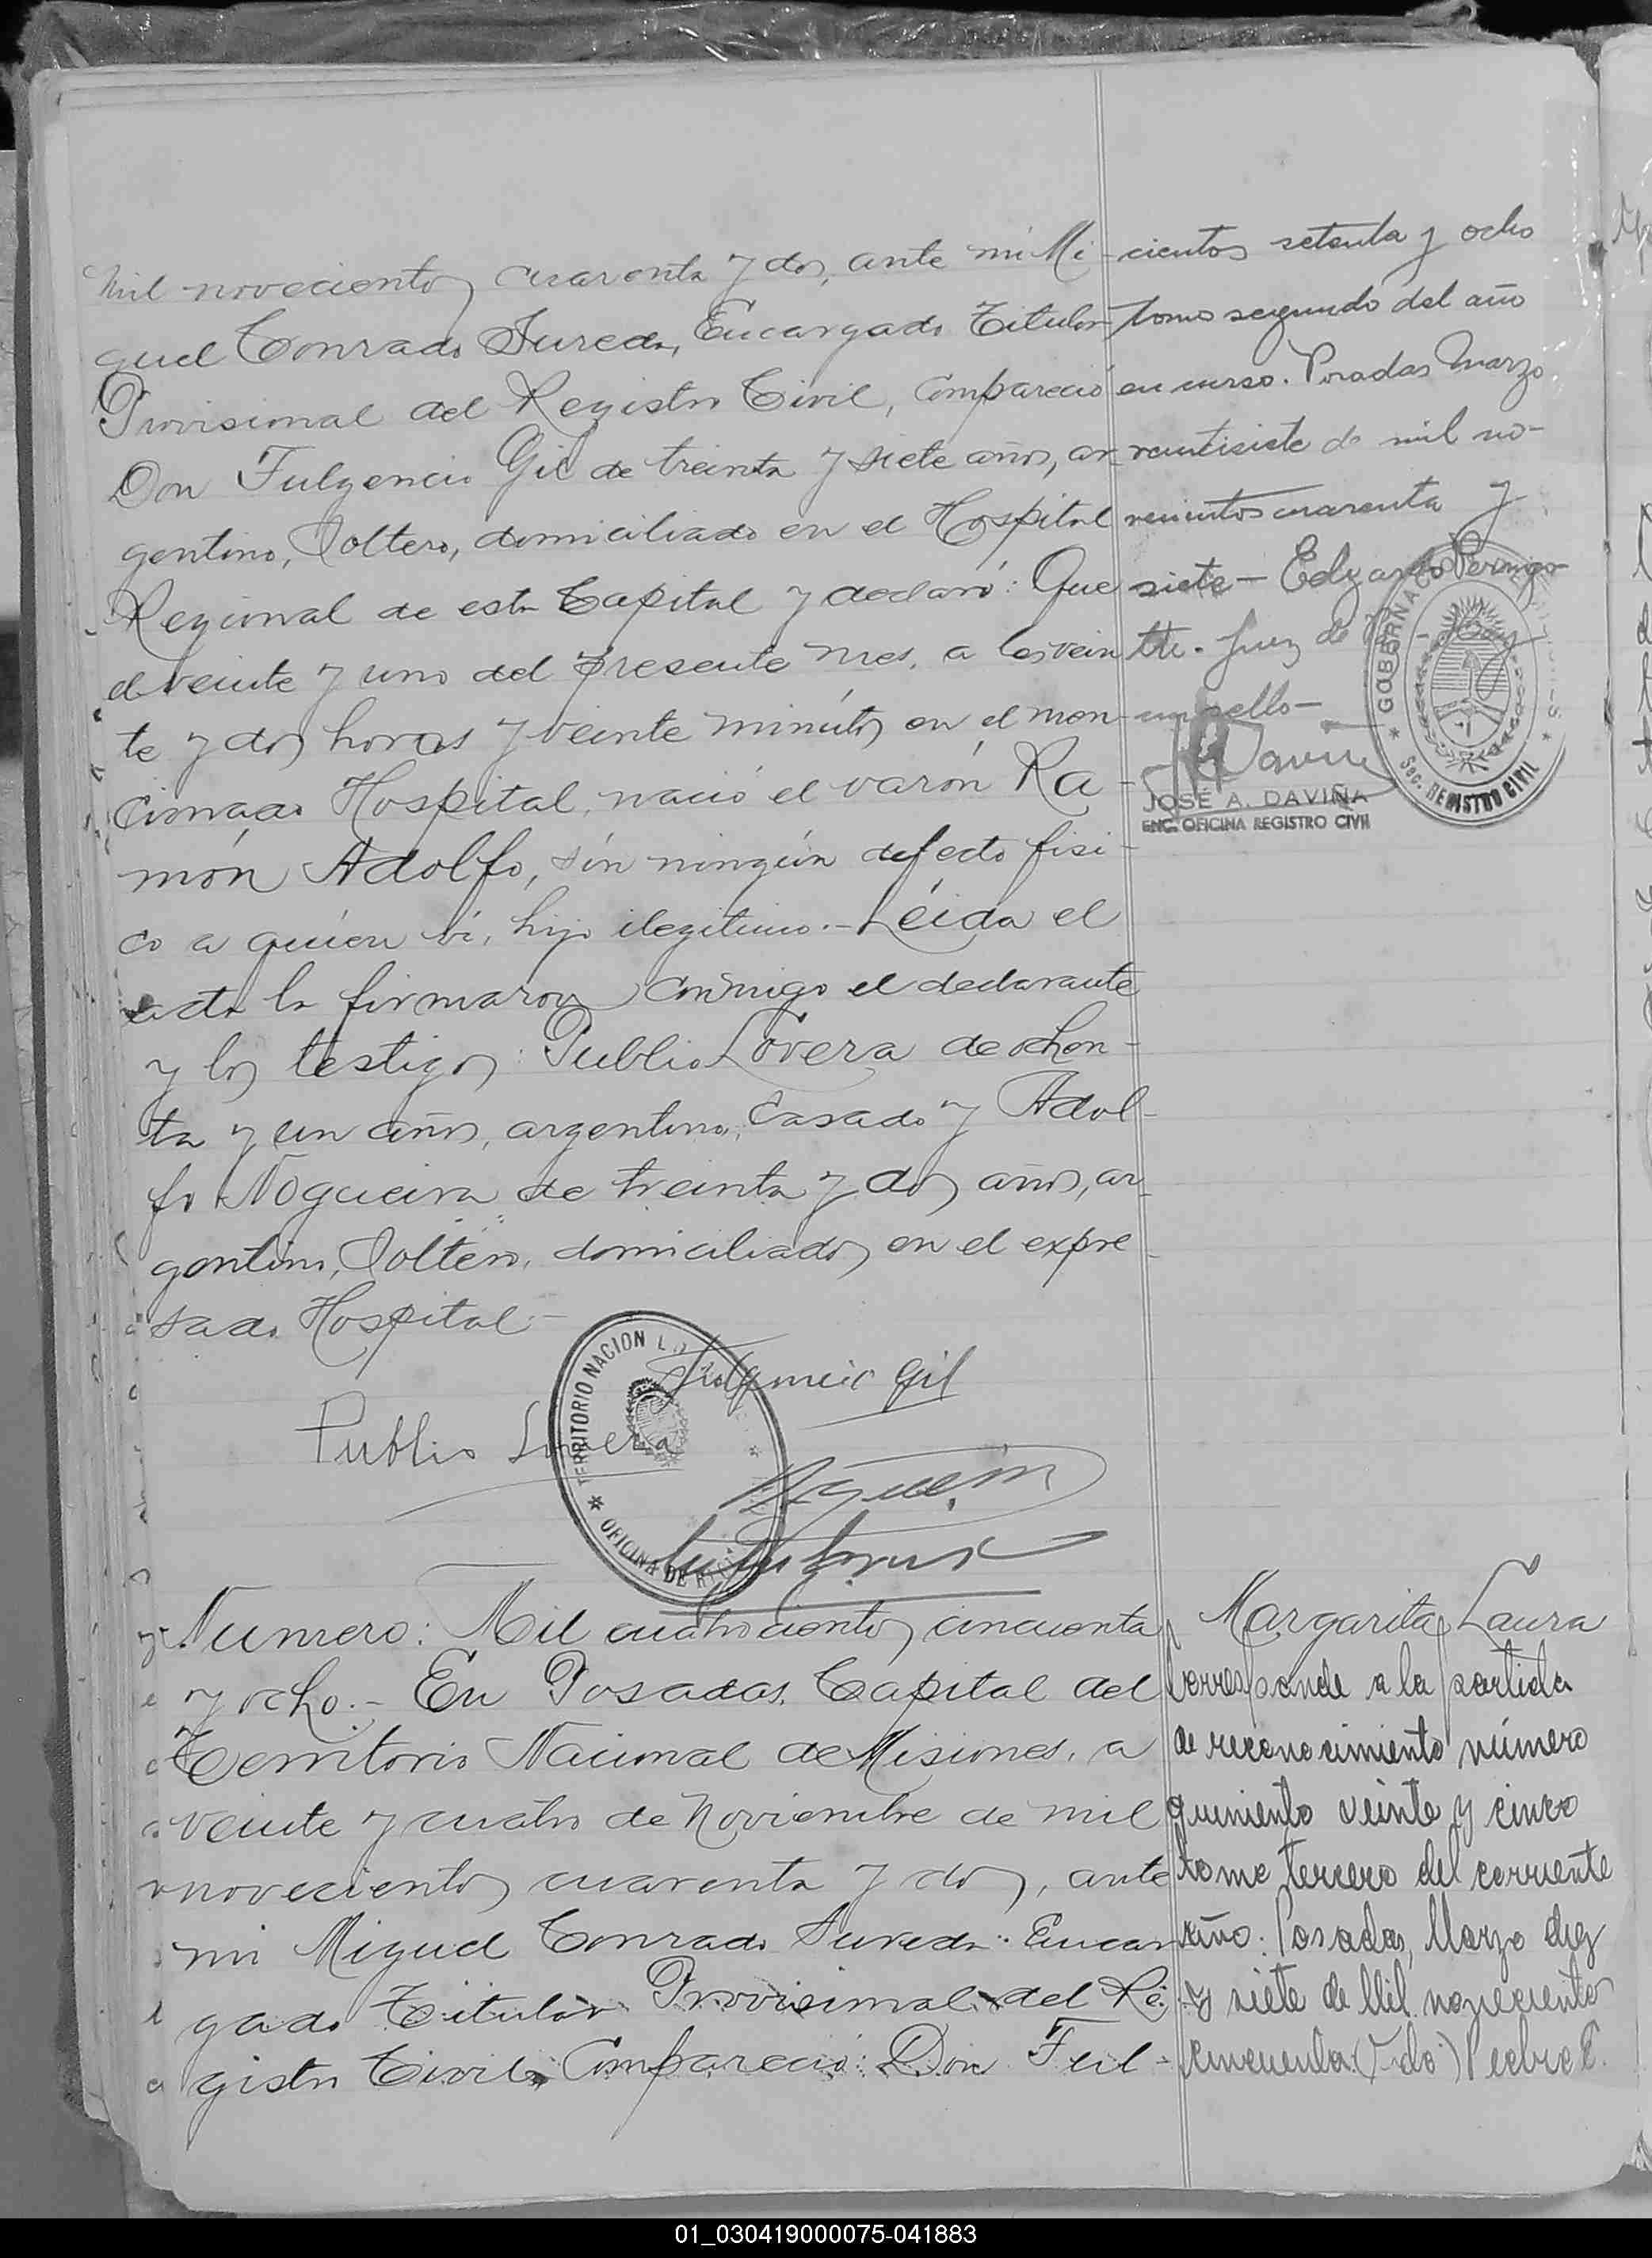 mil novecientos cuarenta y dos, ante mi Mi-
guel Conrado Sureda, Encargado Titular
Provisional del Registro Civil, Compareció
Don Fulgencio Gil de treinta y siete años, ar-
gentino, Soltero, domiciliado en el Hospital
Regional de esta Capital y declaró: Que
el veinte y uno del presente mes, a las vein
te y dos horas y veinte minutos en el men-
cionado Hospital, nació el varón Ra-
món Adolfo, sin ningún defecto fisi-
co a quién ví, hijo ilegitimo.- Leída el
acta la firmaron conmigo el declarante
y los testigos: Publio Lovera de
ta y un años, argentino, Casado y Adol-
fo Nogueira de treinta y dos años, ar-
gentino, Soltero, domiciliados en el expre-
sado Hospital-
cientos setenta y ocho
tomo segundo del año
en curso. Posadas Marzo
veintisiete de mil no-
vecientos cuarenta y
siete- Eduardo
tti. Juez de
un sello-
JOSÉ A. DAVIÑA
ENC. OFICINA REGISTRO CIVIL
GOBERNA
Sec. REGISTRO CIVIL
Fulgencio Gil
Publio Lovera
TERRITORIO NACION
OFICINA DE
Numero: Mil cuatrocientos cincuenta
y ocho.- En Posadas, Capital del
Territorio Nacional de Misiones, a
veinte y cuatro de Noviembre de mil
novecientos cuarenta y dos, ante
mi Miguel Conrado Sureda: Encar
gado Titular Provisional del Re-
gistro Civil, Compareció: Don Ful-
Margarita Laura
Corresponde a la partida
de reconocimiento número
quiniento veinte y cinco
tomo tercero del corriente
año: Posadas, Marzo diez
y siete de Mil novecientos
cincuenta. (Fdo) Pedro E.
01_030419000075-041883